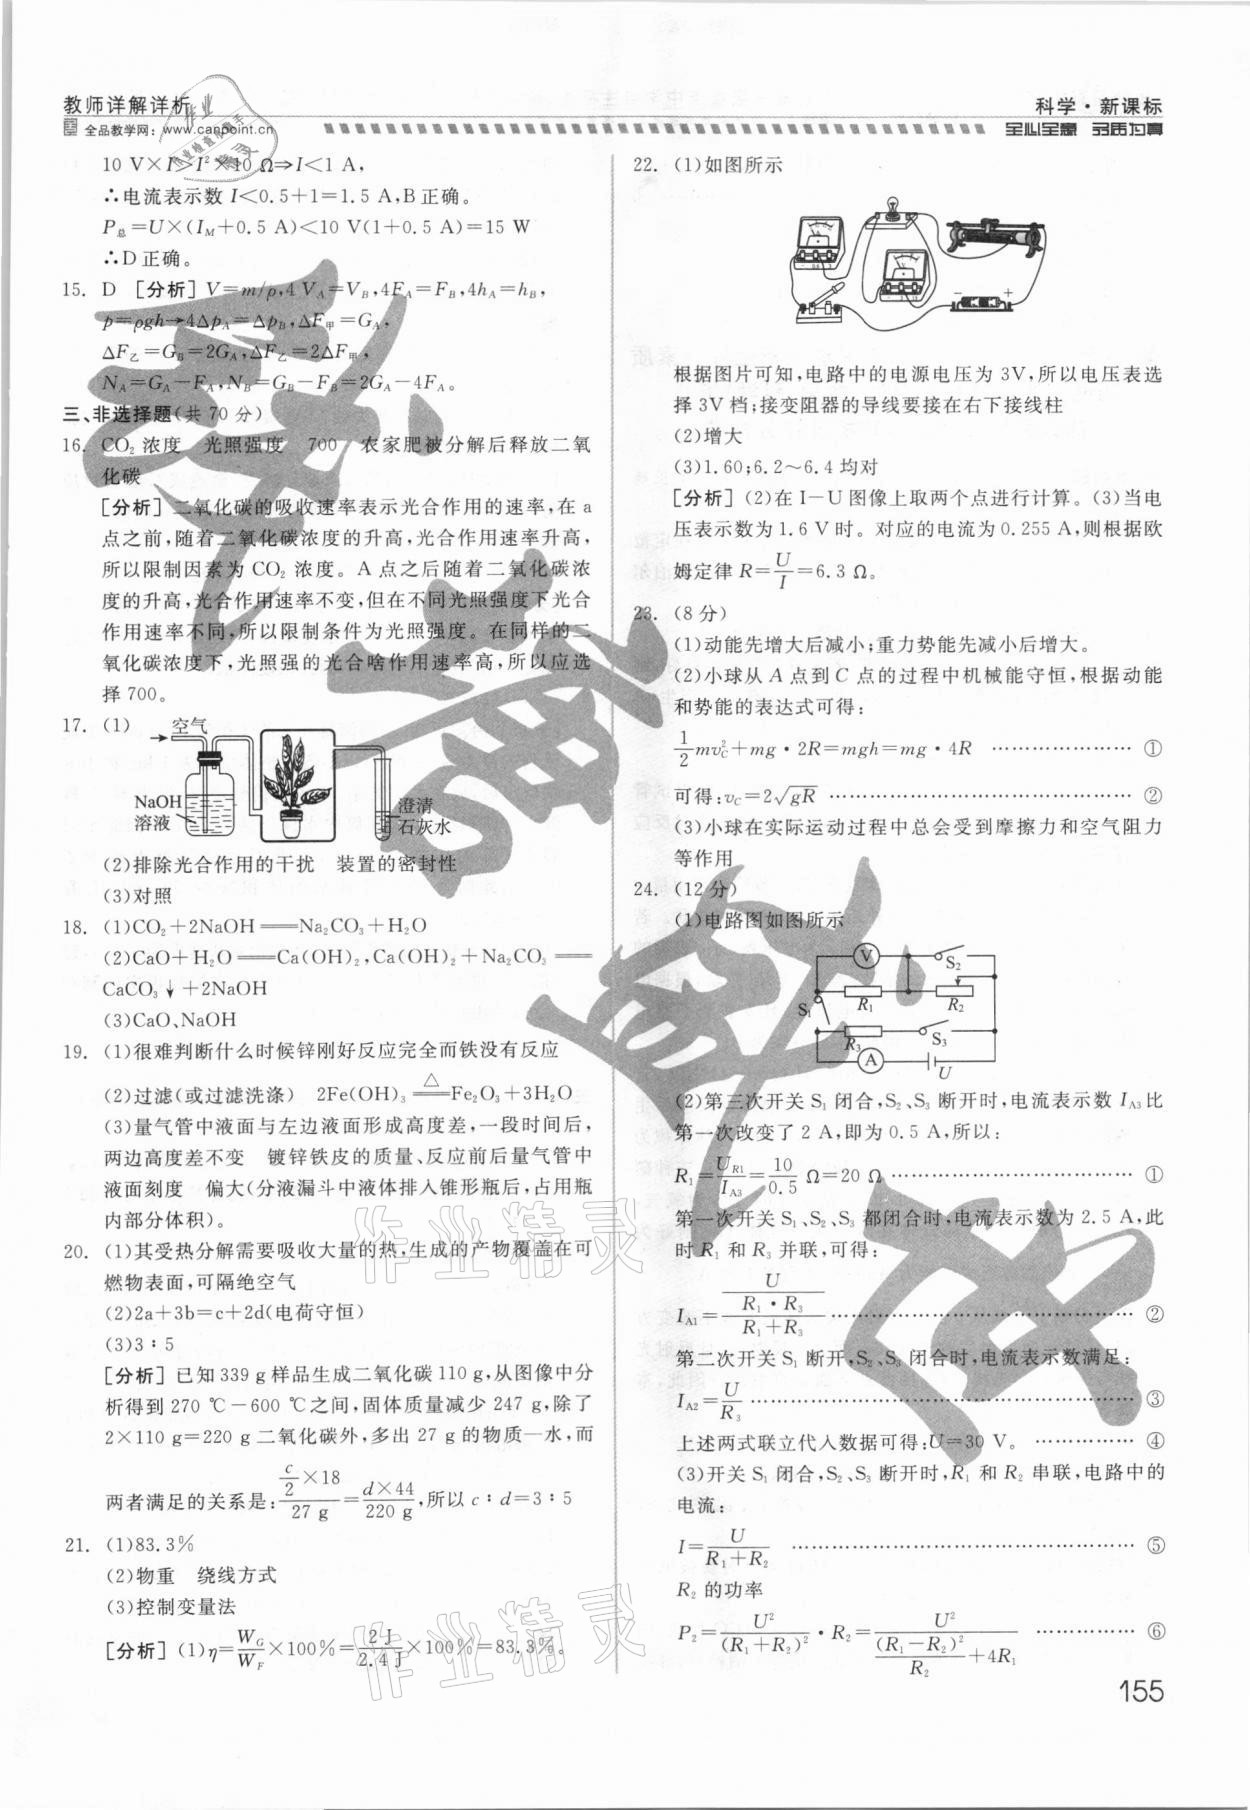 教师详解详析
全品教学网：www.canpoint.cn
科学·新课标
全心全意 多质为真
10 V×I>I²×10 Ω⇒I<1 A,
∴电流表示数 I<0.5+1=1.5 A,B 正确。
P总=U×(I_M+0.5 A)<10 V(1+0.5 A)=15 W
∴D 正确。
15. D [分析] V=m/ρ,4 V_A=V_B,4F_A=F_B,4h_A=h_B,
p=ρgh→4Δp_A=Δp_B,ΔF甲=G_A,
ΔF乙=G_B=2G_A,ΔF乙=2ΔF甲,
N_A=G_A-F_A,N_B=G_B-F_B=2G_A-4F_A。
三、非选择题(共 70 分)
16. CO₂ 浓度 光照强度 700 农家肥被分解后释放二氧
化碳
[分析] 二氧化碳的吸收速率表示光合作用的速率,在 a
点之前,随着二氧化碳浓度的升高,光合作用速率升高,
所以限制因素为 CO₂ 浓度。A 点之后随着二氧化碳浓
度的升高,光合作用速率不变,但在不同光照强度下光合
作用速率不同,所以限制条件为光照强度。在同样的二
氧化碳浓度下,光照强的光合啥作用速率高,所以应选
择 700。
17. (1)
空气
NaOH
溶液
澄清
石灰水
(2)排除光合作用的干扰 装置的密封性
(3)对照
18. (1)CO₂+2NaOH══Na₂CO₃+H₂O
(2)CaO+H₂O══Ca(OH)₂,Ca(OH)₂+Na₂CO₃══
CaCO₃↓+2NaOH
(3)CaO、NaOH
19. (1)很难判断什么时候锌刚好反应完全而铁没有反应
(2)过滤(或过滤洗涤) 2Fe(OH)₃ △══ Fe₂O₃+3H₂O
(3)量气管中液面与左边液面形成高度差,一段时间后,
两边高度差不变 镀锌铁皮的质量、反应前后量气管中
液面刻度 偏大(分液漏斗中液体排入锥形瓶后,占用瓶
内部分体积)。
20. (1)其受热分解需要吸收大量的热,生成的产物覆盖在可
燃物表面,可隔绝空气
(2)2a+3b=c+2d(电荷守恒)
(3)3∶5
[分析] 已知 339 g 样品生成二氧化碳 110 g,从图像中分
析得到 270 ℃-600 ℃之间,固体质量减少 247 g,除了
2×110 g=220 g 二氧化碳外,多出 27 g 的物质—水,而
两者满足的关系是:(c/2×18)/(27 g)=(d×44)/(220 g),所以 c∶d=3∶5
21. (1)83.3%
(2)物重 绕线方式
(3)控制变量法
[分析] (1)η=W_G/W_F×100%=2 J/2.4 J×100%=83.3%。
22. (1)如图所示
根据图片可知,电路中的电源电压为 3V,所以电压表选
择 3V 档;接变阻器的导线要接在右下接线柱
(2)增大
(3)1.60;6.2～6.4 均对
[分析] (2)在 I-U 图像上取两个点进行计算。(3)当电
压表示数为 1.6 V 时。对应的电流为 0.255 A,则根据欧
姆定律 R=U/I=6.3 Ω。
23. (8 分)
(1)动能先增大后减小;重力势能先减小后增大。
(2)小球从 A 点到 C 点的过程中机械能守恒,根据动能
和势能的表达式可得:
1/2 mv_C²+mg·2R=mgh=mg·4R ………………… ①
可得:v_C=2√gR ………………………………… ②
(3)小球在实际运动过程中总会受到摩擦力和空气阻力
等作用
24. (12 分)
(1)电路图如图所示
V
S₂
S₁
R₁
R₂
R₃
S₃
A
U
(2)第三次开关 S₁ 闭合,S₂、S₃ 断开时,电流表示数 I_A3 比
第一次改变了 2 A,即为 0.5 A,所以:
R₁=U_R1/I_A3=10/0.5 Ω=20 Ω ………………………… ①
第一次开关 S₁、S₂、S₃ 都闭合时,电流表示数为 2.5 A,此
时 R₁ 和 R₃ 并联,可得:
I_A1=U/((R₁·R₃)/(R₁+R₃)) ………………………………… ②
第二次开关 S₁ 断开,S₂、S₃ 闭合时,电流表示数满足:
I_A2=U/R₃ ………………………………………… ③
上述两式联立代人数据可得:U=30 V。 …………… ④
(3)开关 S₁ 闭合,S₂、S₃ 断开时,R₁ 和 R₂ 串联,电路中的
电流:
I=U/(R₁+R₂) ………………………………… ⑤
R₂ 的功率
P₂=U²/(R₁+R₂)²·R₂=U²/((R₁-R₂)²/R₂+4R₁) …………… ⑥
155
作业精灵
作业精灵